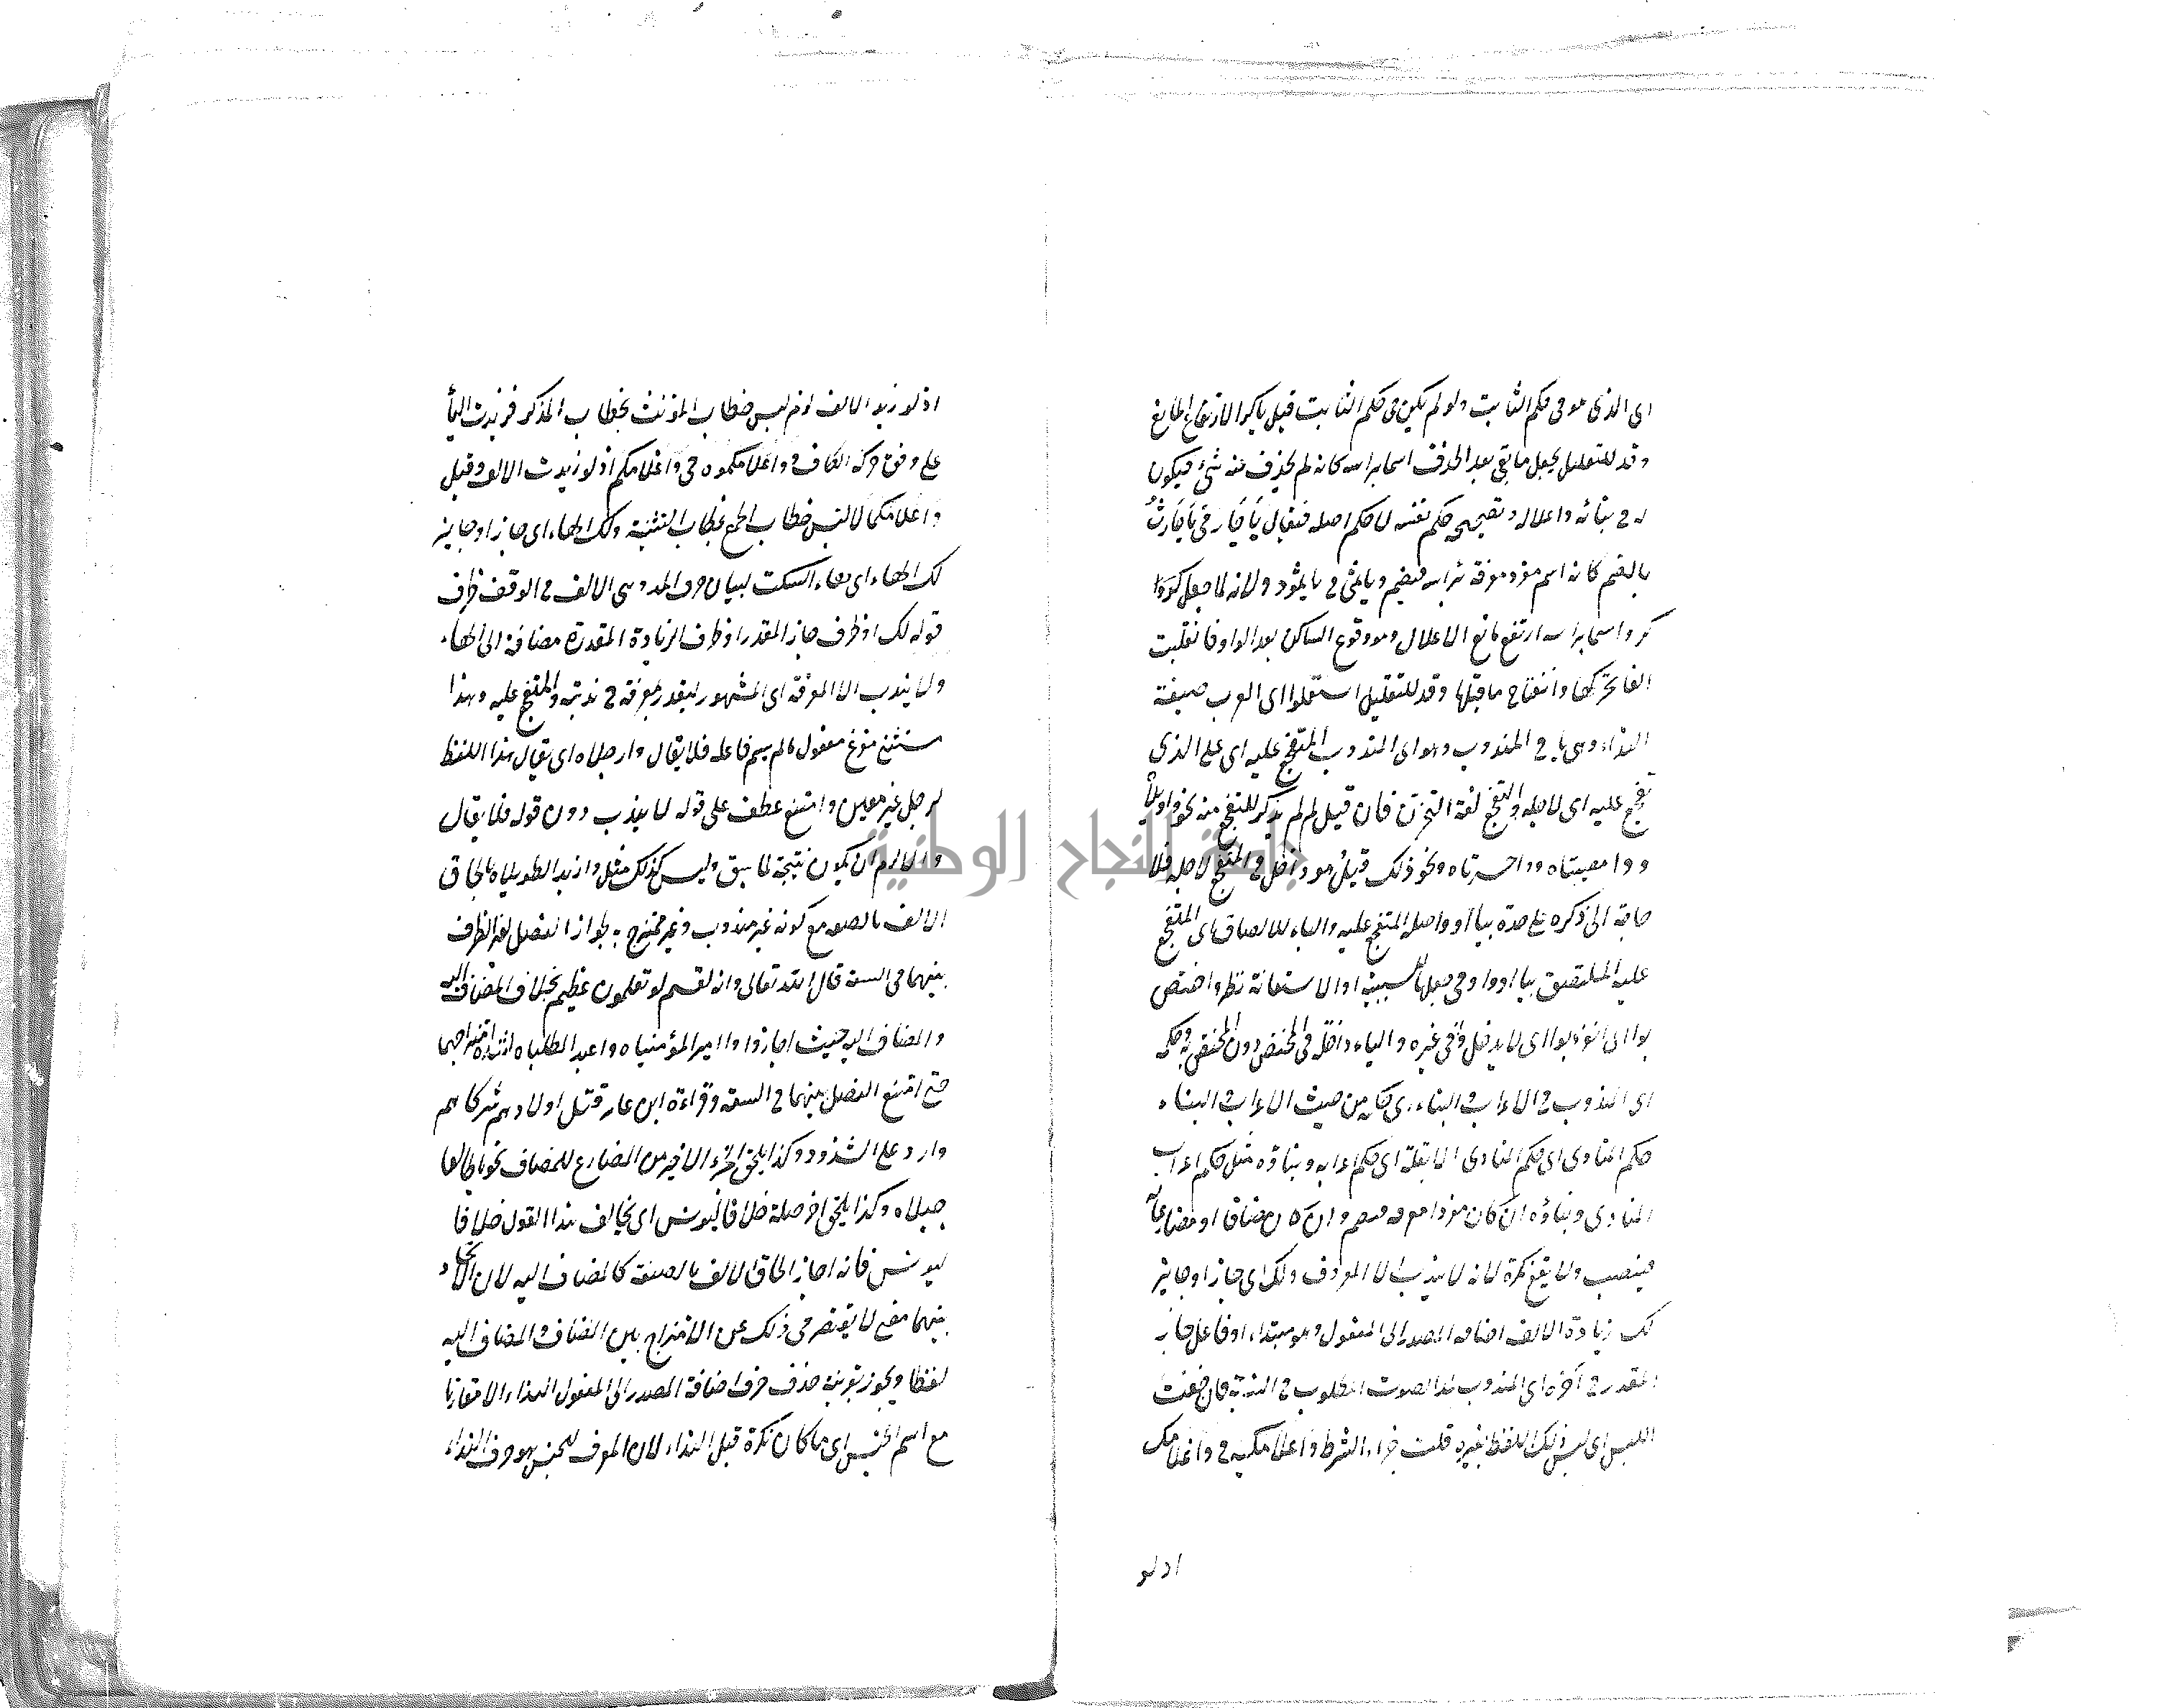 اى الذى هو فى حكم الثابت ولو لم يكن فى حكم الثابت قيل ياكرا لارتفاع المانع
وقد للتعليل يجعل ما بقى بعد الحذف اسما براسه كانه لم يحذف منه شئ فيكون
له فى بنائه واعلاله وتصحيحه حكم نفسه لا حكم اصله فيقال يا حار فى يا حارث
بالضم كانه اسم مفرد معرفة براسه فيضم ويا ثمى فى يا ثمود ولانه لما جعل كروا
كرو اسما براسه ارتفع مانع الاعلال وهو وقوع الساكن بعد الواو فانقلبت
الفا لتحركها وانفتاح ما قبلها وقد للتقليل استعملوا اى العرب صيغة
النداء وهى يا فى المندوب وهو اى المندوب المتفجع عليه اى على الذى
تفجع عليه اى لاجله والتفجع لغة التحزن فان قيل لم لم يذكر المتفجع منه نحو واويلاه
و وا مصيبتاه وواحسرتاه ونحو ذلك قيل هو داخل فى المتفجع لاجله فلا
حاجة الى ذكره على حدة بيا او وا صلة المتفجع عليه والباء للالصاق اى المتفجع
عليه الملتصق بيا او وا وفى جعلها للسببية او الاستعانة نظر واختص
بوا اى انفرد بوا اى لا يدخل وا فى غيره والباء داخلة فى المختص دون المختص به وحكمه
اى المندوب فى الاعراب والبناء اى حكمه من حيث الاعراب والبناء
حكم المنادى اى حكم المنادى الا بقلة اى حكم اعرابه وبناؤه مثل حكم اعراب
المنادى وبناؤه ان كان مفردا معرفة فيضم وان كان مضافا او مضارعا له
فينصب ولا يقع نكرة لانه لا يندب الا المعروف ولك اى جاز او جائز
لك زيادة الالف اضافة المصدر الى المفعول وهو مبتداء او فاعل جاز
المقدر فى آخره اى المندوب لمد الصوت المطلوب فى الندبة فان خفت
اللبس اى لبس ذلك اللفظ بغيره قلت جزاء الشرط واغلامكيه فى واغلامك
اذ لو
اذ لو زيد الالف لزم لبس خطاب المؤنث بخطاب المذكر فزيدت الياء
على وفق حركة الكاف و واغلامكموه فى واغلامكم اذ لو زيدت الالف وقيل
واغلامكما لالتبس خطاب الجمع بخطاب التثنية ولك الهاء اى جاز او جائز
لك الهاء اى هاء السكت لبيان حرف المد وهى الالف فى الوقف ظرف
قوله لك او ظرف جاز المقدر او ظرف الزيادة المقدرة مضافة الى الهاء
ولا يندب الا المعرفة اى المشهور ليعذر بمعرفة فى ندبته والمتفجع عليه وهذا
مستثنى مفرغ مفعول ما لم يسم فاعله فلا يقال وا رجلاه اى يقال هذا اللفظ
لرجل غير معين وامتنع عطف على قوله لا يندب دون قوله فلا يقال
والا لزم ان يكون نتيجة لما سبق وليس كذلك مثل وازيد الطويلاه بالحاق
الالف بالصفة مع كونه غير مندوب وغير ممتزج به لجواز الفصل لغير الظرف
بينهما فى السعة قال الله تعالى وانه لقسم لو تعلمون عظيم بخلاف المضاف اليه
والمضاف اليه حيث اجازوا وا امير المؤمنيناه واعبد المطلباه لشدة امتزاجهما
حتى امتنع الفصل بينهما فى السعة وقراءة ابن عامر قتل اولادهم شركائهم
وارد على الشذوذ وكذا يلحق الجزء الاخير من المضارع للمضاف نحو يا طالعا
جبلاه وكذا يلحق آخر صلة خلافا ليونس اى يخالف هذا القول خلافا
ليونس فانه اجاز الحاق الالف بالصفة كالمضاف اليه لان الاتحاد
بينهما معنى لا يقتصر فى ذلك عن الامتزاج بين المضاف والمضاف اليه
لفظا ويجوز بقرينة حذف حرف اضافة المصدر الى المفعول النداء الا مقارنا
مع اسم الجنس اى ما كان نكرة قبل النداء لان المعرف للجنس هو حرف النداء
جامعة النجاح الوطنية